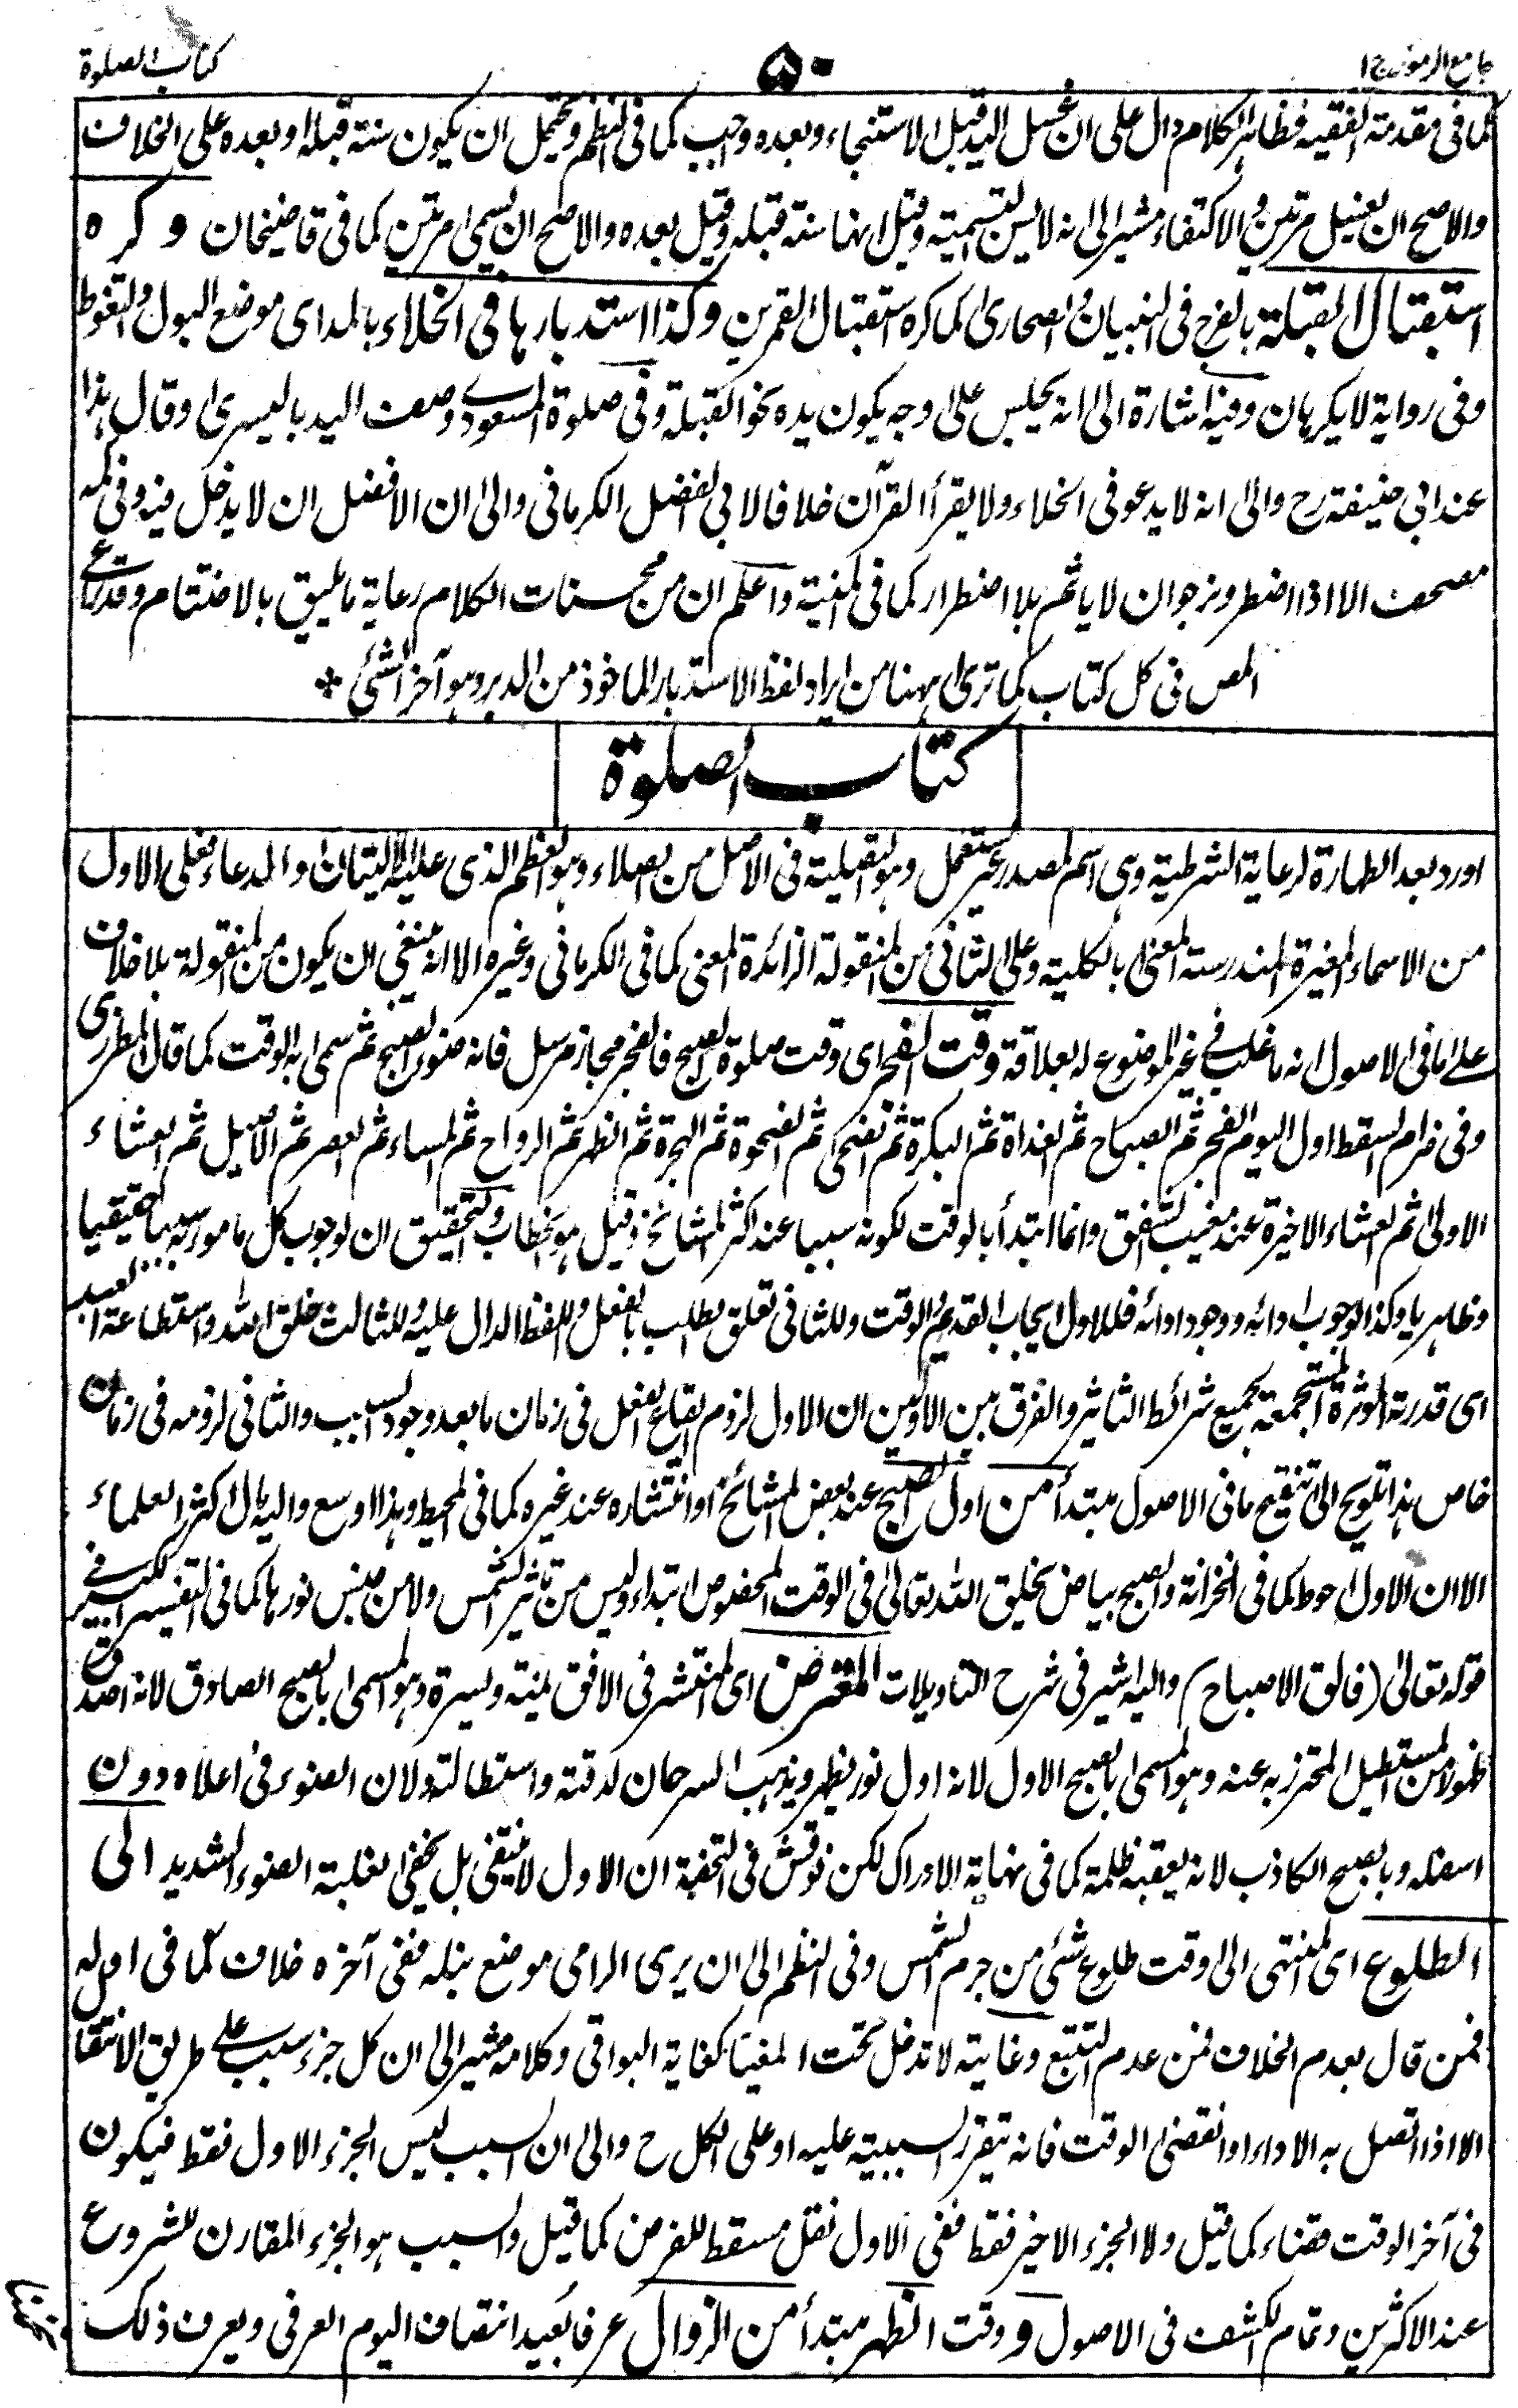 جامع الرموز ج ١
٥٠
كتاب الصلوة
كما فى مقدمة الفقيه فظاهر الكلام دال على ان غسل اليد قبل الاستنجاء وبعده واجب كما فى النظم ويحتمل ان يكون سنة قبله او بعده على الخلاف
والاصح ان يغسل مرتين والاكتفاء مشير الى انه لا يسن التسمية وقيل انها سنة قبله وقيل بعده والاصح ان يسمى مرتين كما فى قاضيخان وكره
استقبال القبلة بالفرج فى البنيان والصحارى كما كره استقبال القمرين وكذا استدبارها فى الخلاء بالمد اى موضع البول والتغوط
وفى رواية لا يكرهان وفيه اشارة الى انه يجلس على وجه يكون يده نحو القبلة وفى صلوة المسعودى وصف اليد باليسرى وقال هذا
عند ابى حنيفة رح والى انه لا يدعو فى الخلاء ولا يقرأ القرآن خلافا لابى الفضل الكرمانى والى ان الافضل ان لا يدخل فيه وفى كمه
مصحف الا اذا اضطر ونرجو ان لا ياثم بلا اضطرار كما فى المنية واعلم ان من محسنات الكلام رعاية ما يليق بالاختتام وقد راعى
المص فى كل كتاب كما ترى ههنا من ايراد لفظ الاستدبار الماخوذ من الدبر وهو آخر الشئ *
كتاب الصلوة
اورد بعد الطهارة لرعاية الشرطية وهى اسم لمصدر غير مستعمل وهو التصلية فى الاصل من الصلاء وهو العظم الذى عليه الاليتان او الدعاء فعلى الاول
من الاسماء المغيرة المندرسة المعنى بالكلية وعلى الثانى من المنقولة الزائدة المعنى كما فى الكرمانى وغيره الا انه ينبغى ان يكون من المنقولة بلا خلاف
على ما فى الاصول انه ما غلب فى غير الموضوع له لعلاقة وقت الفجر اى وقت صلوة الصبح فالفجر مجاز مرسل فانه ضوء الصبح ثم سمى به الوقت كما قال المطرزى
وفى ضرام السقط اول اليوم الفجر ثم الصباح ثم الغداة ثم البكرة ثم الضحى ثم الضحوة ثم الهجرة ثم الظهر ثم الرواح ثم المساء ثم العصر ثم الاصيل ثم العشاء
الاولى ثم العشاء الاخيرة عند مغيب الشفق وانما ابتدأ بالوقت لكونه سببا عند اكثر المشائخ وقيل هو الخطاب والتحقيق ان لوجوب كل مامور به سببا حقيقيا
وظاهريا وكذا لوجوب ادائه ووجود ادائه فللاول ايجاب القديم والوقت وللثانى تعلق الطلب بالفعل واللفظ الدال عليه وللثالث خلق الله واستطاعة العبد
اى قدرته المؤثرة المستجمعة بجميع شرائط التاثير والفرق بين الاولين ان الاول لزوم ايقاع الفعل فى زمان ما بعد وجود السبب والثانى لزومه فى زمان
خاص هذا تلويح الى تنقيح ما فى الاصول مبتدأ من اول الصبح عند بعض المشائخ او انتشاره عند غيره كما فى المحيط وهذا اوسع واليه مال اكثر العلماء
الا ان الاول احوط كما فى الخزانة والصبح بياض بخلق الله تعالى فى الوقت المخصوص ابتداء وليس من تاثير الشمس ولا من جنس نورها كما فى التفسير الكبير فى
قوله تعالى (فالق الاصباح) واليه اشير فى شرح التاويلات المعترض اى المنتشر فى الافق يمنة ويسرة وهو المسمى بالصبح الصادق لانه اصدق
ظهورا من المستطيل المحترز به عنه وهو المسمى بالصبح الاول لانه اول نور يظهر وبذنب السرحان لدقته واستطالته ولان الضوء فى اعلاه دون
اسفله وبالصبح الكاذب لانه يعقبه ظلمة كما فى نهاية الادراك لكن نوقش فى التحفة ان الاول لا ينتفى بل يخفى لغلبة الضوء الشديد الى
الطلوع اى المنتهى الى وقت طلوع شئ من جرم الشمس وفى النظم الى ان يرى الرامى موضع نبله ففى آخره خلاف كما فى اوله
فمن قال بعدم الخلاف فمن عدم التتبع وغايته لا تدخل تحت المغيا كغاية البواقى وكلامه مشير الى ان كل جزء سبب على طريق الانتقال
الا اذا اتصل به الاداء او انقضى الوقت فانه يتقرر السببية عليه او على الكل ح والى ان السبب ليس الجزء الاول فقط فيكون
فى آخر الوقت قضاء كما قيل ولا الجزء الاخير فقط ففى الاول نفل مسقط للفرض كما قيل والسبب هو الجزء المقارن للشروع
عند الاكثرين وتمام الكشف فى الاصول ووقت الظهر مبتدأ من الزوال عرفا بعيد انتصاف اليوم العرفى ويعرف ذلك